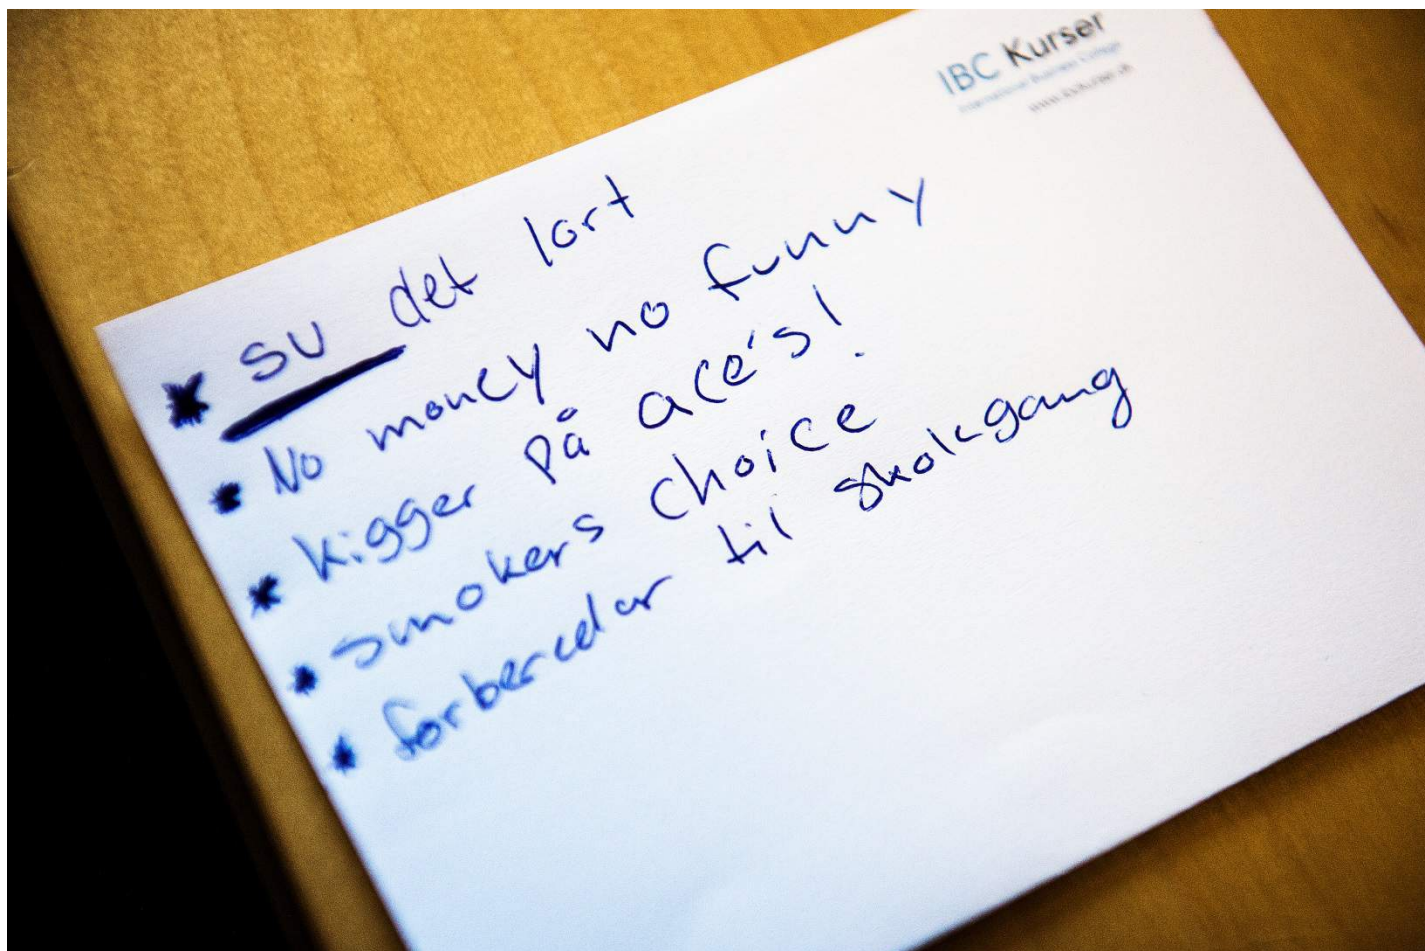 IBC Kurser
International Business College
www.ibckurser.dk
* SU det lort
* No money no funny
* kigger på ace's!
* smokers choice
* forbereder til skolegang